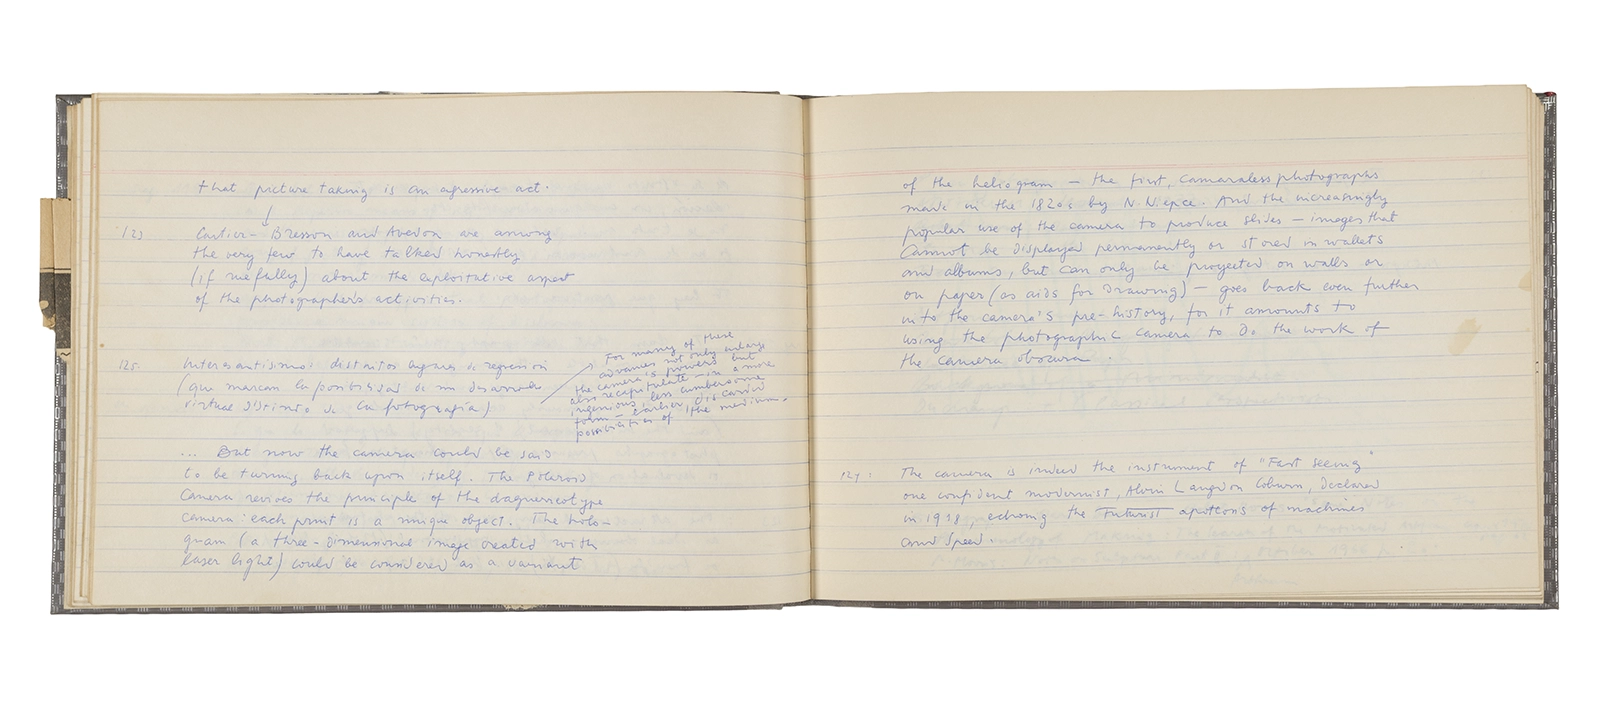 that picture taking is an agressive act.
123 Cartier-Bresson and Avedon are among
the very few to have talked honestly
(if ruefully) about the exploitative aspect
of the photographer's activities.
125- Interesantísimo: distintos lugares de regresión
(que marcan la posibilidad de un desarrollo
virtual distinto de la fotografía)
For many of these
advances not only enlarge
the camera's powers but
also recapitulate — in a more
ingenious, less cumbersome
form — earlier, discarded
possibilities of the medium.
... But now the camera could be said
to be turning back upon itself. The Polaroid
Camera revives the principle of the daguerreotype
camera: each print is a unique object. The holo-
gram (a three-dimensional image created with
laser light) could be considered as a variant
of the heliogram — the first, camaraless photographs
made in the 1820s by N. Niepce. And the increasingly
popular use of the camera to produce slides — images that
cannot be displayed permanently or stored in wallets
and albums, but can only be proyected on walls or
on paper (as aids for drawing) — goes back even further
into the camera's pre-history, for it amounts to
using the photographic camera to do the work of
the camera obscura.
124: The camera is indeed the instrument of "Fast seeing"
one confident modernist, Alvin Langdon Coburn, declared
in 1918, echoing the Futurist apoteons of machines
and speed.